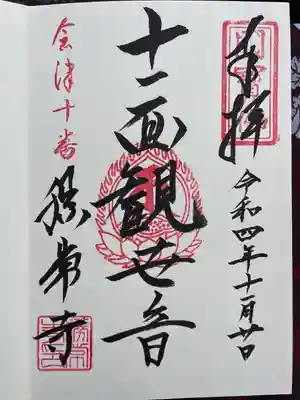 奉拝
令和四年十一月廿日
十一面観世音
会津十番
勝常寺